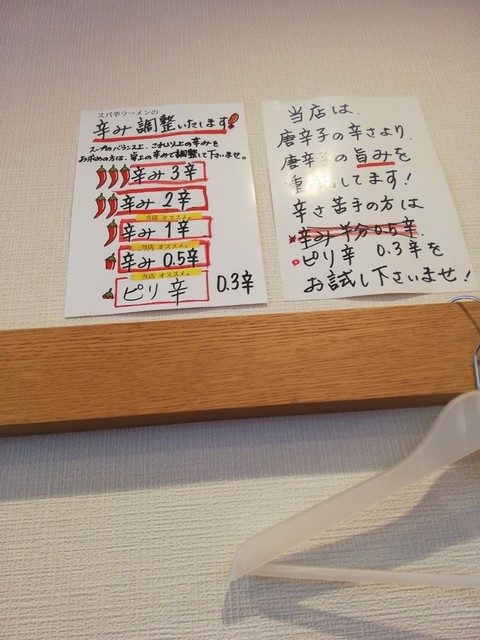 スパ辛ラーメンの
辛み調整いたします!
スープのバランス上、これ以上の辛みを
お求めの方は、卓上の辛みで調整して下さいませ。
辛み3辛
辛み2辛
当店 オススメ。
辛み1辛
当店 オススメ。
辛み0.5辛
当店 オススメ。
ピリ辛 0.3辛
当店は、
唐辛子の辛さより、
唐辛子の旨みを
重視してます!
辛さ苦手の方は
辛み半分0.5辛
ピリ辛 0.3辛を
お試し下さいませ!